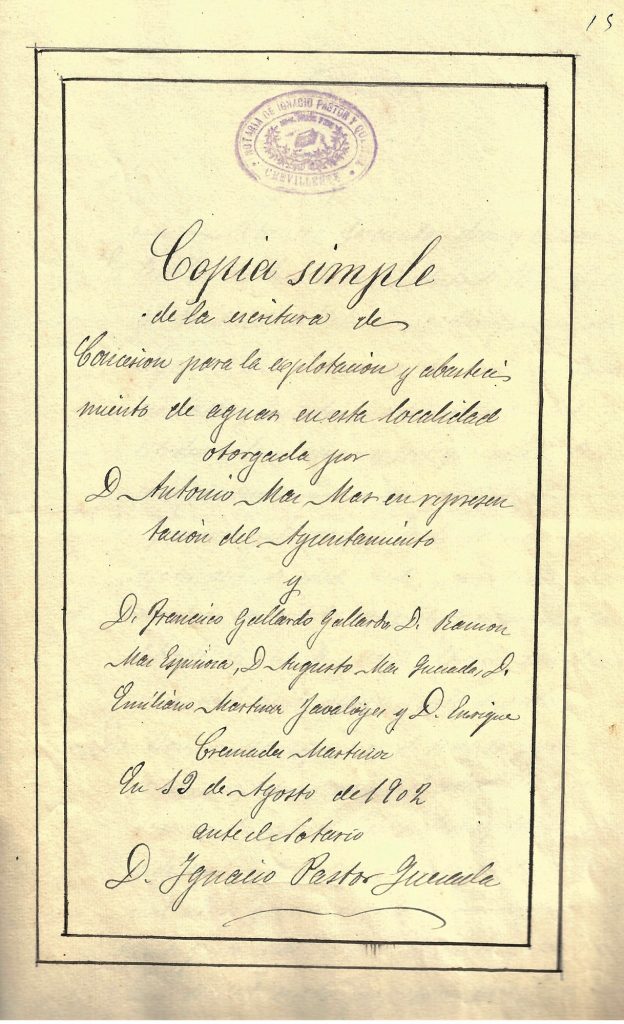 15
NOTARIA DE IGNACIO PASTOR Y
CREVILLENTE
Copia simple
de la escritura de
Concesion para la explotación y abasteci
miento de aguas en esta localidad
otorgada por
D Antonio Mas Mas en represen
tación del Ayuntamiento
y
D. Francisco Gallardo Gallardo, D. Ramon
Mas Espinosa, D Augusto Mas Quesada, D.
Emiliano Martinez Javaloyes y D. Enrique
Cremades Martinez
En 19 de Agosto de 1902
ante el Notario
D. Ignacio Pastor Quesada